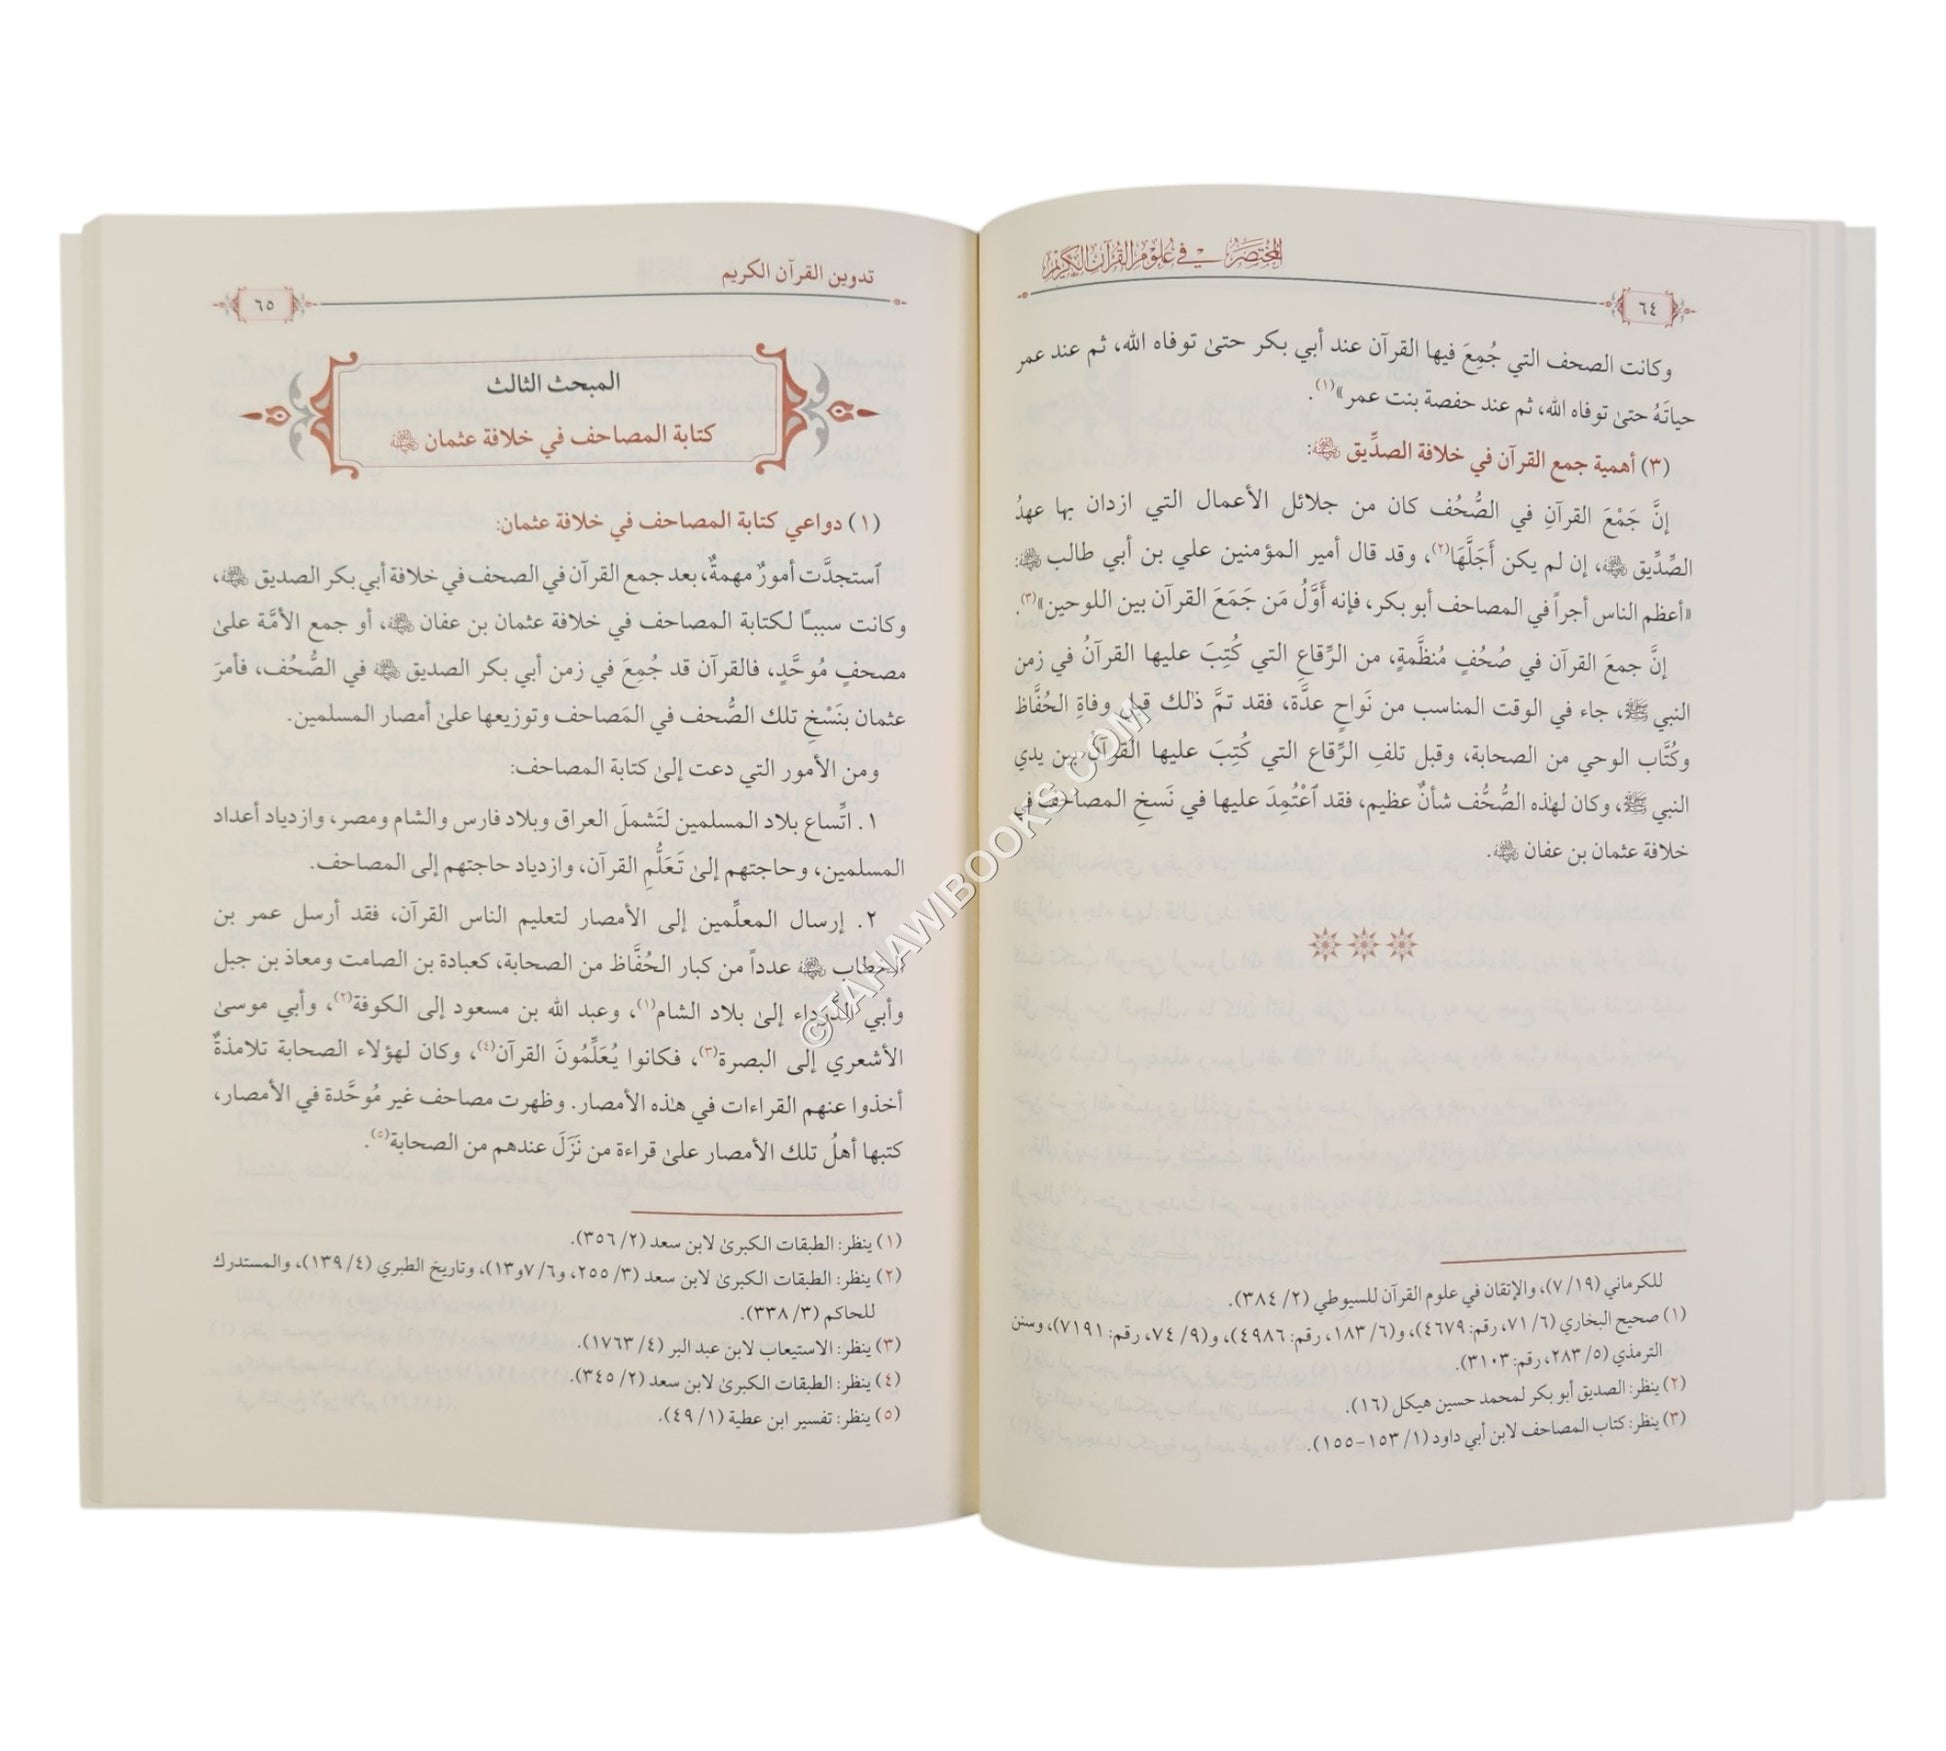 المختصر في علوم القرآن الكريم
٦٤
وكانت الصحف التي جُمِعَ فيها القرآن عند أبي بكر حتىٰ توفاه الله، ثم عند عمر
حياتَهُ حتىٰ توفاه الله، ثم عند حفصة بنت عمر»(١).
(٣) أهمية جمع القرآن في خلافة الصدِّيق ﵁:
إنَّ جَمْعَ القرآنِ في الصُّحُف كان من جلائل الأعمال التي ازدان بها عهدُ
الصِّدِّيق ﵁، إن لم يكن أَجَلَّهَا(٢)، وقد قال أمير المؤمنين علي بن أبي طالب ﵁:
«أعظم الناس أجراً في المصاحف أبو بكر، فإنه أَوَّلُ مَن جَمَعَ القرآن بين اللوحين»(٣).
إنَّ جمعَ القرآن في صُحُفٍ مُنظَّمةٍ، من الرِّقاعِ التي كُتِبَ عليها القرآنُ في زمن
النبي ﷺ، جاء في الوقت المناسب من نَواحٍ عدَّة، فقد تمَّ ذٰلك قبل وفاةِ الحُفَّاظ
وكُتَّاب الوحي من الصحابة، وقبل تلفِ الرِّقاع التي كُتِبَ عليها القرآن بين يدي
النبي ﷺ، وكان لهٰذه الصُّحُف شأنٌ عظيم، فقد ٱعْتُمِدَ عليها في نَسخِ المصاحف في
خلافة عثمان بن عفان ﵁.
للكرماني (١٩/ ٧)، والإتقان في علوم القرآن للسيوطي (٢/ ٣٨٤).
(١) صحيح البخاري (٦/ ٧١، رقم: ٤٦٧٩)، و(٦/ ١٨٣، رقم: ٤٩٨٦)، و(٩/ ٧٤، رقم: ٧١٩١)، وسنن
الترمذي (٥/ ٢٨٣، رقم: ٣١٠٣).
(٢) ينظر: الصديق أبو بكر لمحمد حسين هيكل (١٦).
(٣) ينظر: كتاب المصاحف لابن أبي داود (١/ ١٥٣-١٥٥).
تدوين القرآن الكريم
٦٥
المبحث الثالث
كتابة المصاحف في خلافة عثمان ﵁
(١) دواعي كتابة المصاحف في خلافة عثمان:
ٱستجدَّت أمورٌ مهمةٌ، بعد جمع القرآن في الصحف في خلافة أبي بكر الصديق ﵁،
وكانت سببـاً لـكتابة المصاحف في خلافة عثمان بن عفان ﵁، أو جمع الأمَّة علىٰ
مصحفٍ مُوحَّدٍ، فالقرآن قد جُمِعَ في زمن أبي بكر الصديق ﵁ في الصُّحُف، فأمرَ
عثمان بنَسْخِ تلك الصُّحف في المَصاحف وتوزيعها علىٰ أمصار المسلمين.
ومن الأمور التي دعت إلىٰ كتابة المصاحف:
١. اتِّساع بلاد المسلمين لتَشملَ العراق وبلاد فارس والشام ومصر، وازدياد أعداد
المسلمين، وحاجتهم إلىٰ تَعَلُّمِ القرآن، وازدياد حاجتهم إلى المصاحف.
٢. إرسال المعلِّمين إلى الأمصار لتعليم الناس القرآن، فقد أرسل عمر بن
الخطاب ﵁ عدداً من كبار الحُفَّاظ من الصحابة، كعبادة بن الصامت ومعاذ بن جبل
وأبي الدَّرداء إلىٰ بلاد الشام(١)، وعبد الله بن مسعود إلى الكوفة(٢)، وأبي موسىٰ
الأشعري إلى البصرة(٣)، فكانوا يُعَلِّمُونَ القرآن(٤)، وكان لهؤلاء الصحابة تلامذةٌ
أخذوا عنهم القراءات في هٰذه الأمصار. وظهرت مصاحف غير مُوحَّدة في الأمصار،
كتبها أهلُ تلك الأمصار علىٰ قراءة من نَزَلَ عندهم من الصحابة(٥).
(١) ينظر: الطبقات الكبرىٰ لابن سعد (٢/ ٣٥٦).
(٢) ينظر: الطبقات الكبرىٰ لابن سعد (٣/ ٢٥٥، و٦/ ٧و١٣)، وتاريخ الطبري (٤/ ١٣٩)، والمستدرك
للحاكم (٣/ ٣٣٨).
(٣) ينظر: الاستيعاب لابن عبد البر (٤/ ١٧٦٣).
(٤) ينظر: الطبقات الكبرىٰ لابن سعد (٢/ ٣٤٥).
(٥) ينظر: تفسير ابن عطية (١/ ٤٩).
©TAHAWIBOOKS.COM